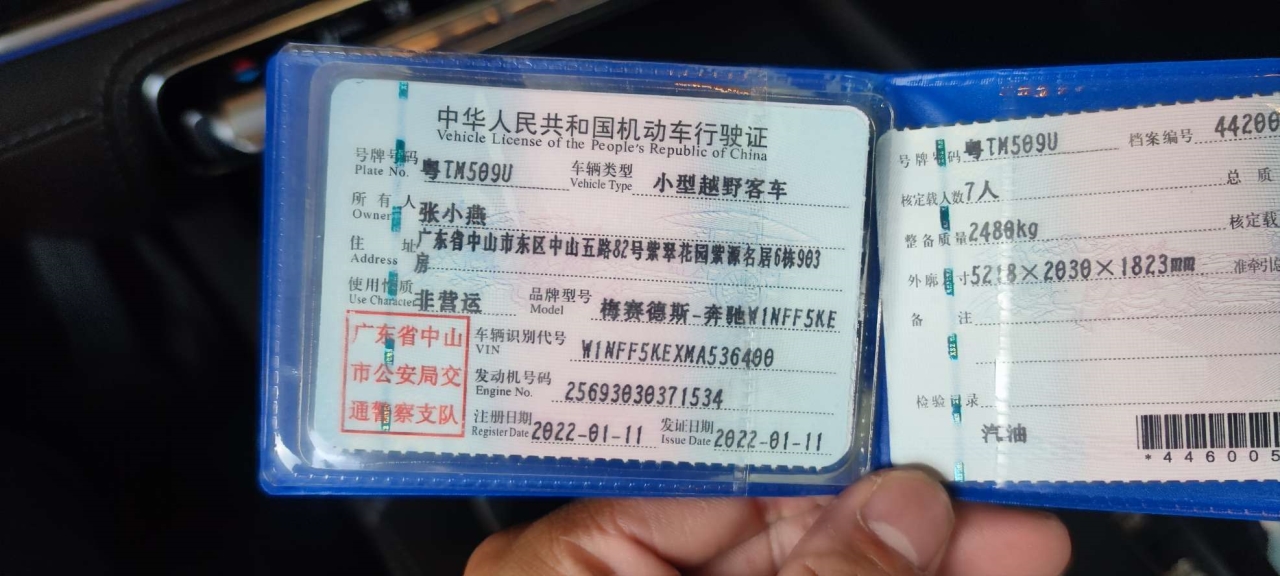 中华人民共和国机动车行驶证
Vehicle License of the People's Republic of China
号牌号码 粤TM509U 车辆类型 小型越野客车
Plate No. Vehicle Type
所有人 张小燕
Owner
住址 广东省中山市东区中山五路82号紫翠花园紫源名居6栋903
Address 房
使用性质 非营运 品牌型号 梅赛德斯-奔驰W1NFF5KE
Use Character Model
广东省中山
市公安局交
通警察支队
车辆识别代号 W1NFF5KEXMA536400
VIN
发动机号码 25693030371534
Engine No.
注册日期 2022-01-11 发证日期 2022-01-11
Register Date Issue Date
号牌号码 粤TM509U 档案编号 44200
核定载人数 7人 总质
整备质量 2480kg 核定载
外廓尺寸 5218×2030×1823mm 准牵引总
备注
检验记录
汽油
*446005